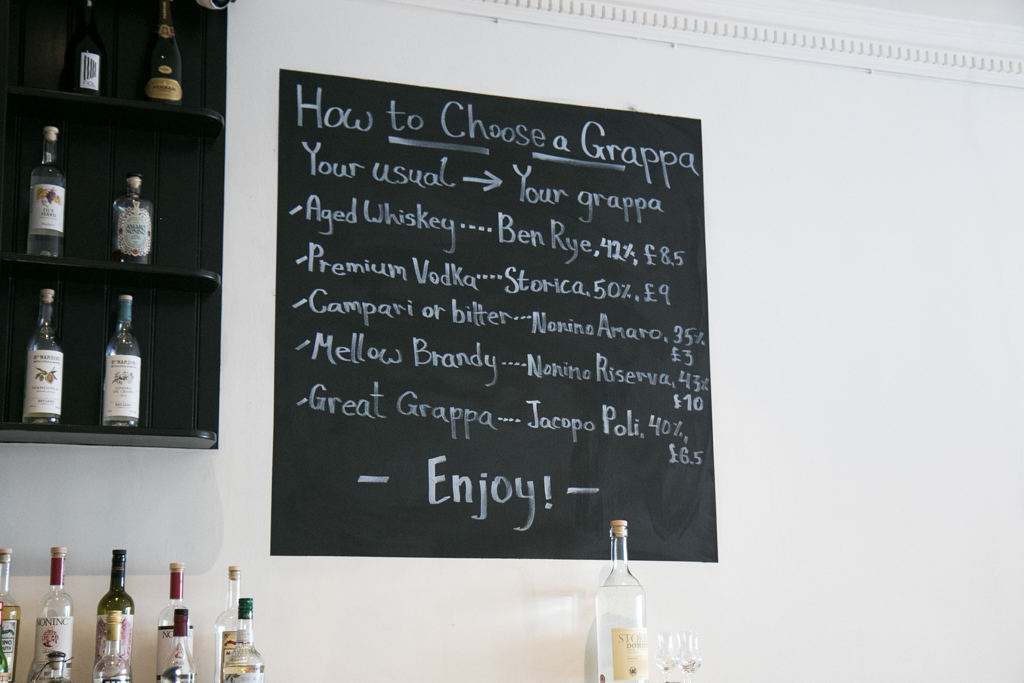 How to Choose a Grappa
Your usual → Your grappa
-Aged Whiskey .... Ben Rye, 42%, £8.5
-Premium Vodka .... Storica, 50%, £9
-Campari or bitter --- Nonino Amaro, 35%
£3
-Mellow Brandy ---- Nonino Riserva, 43%
£10
-Great Grappa ---- Jacopo Poli, 40%,
£6.5
- Enjoy! -
AMARO
NONINO
NONINO